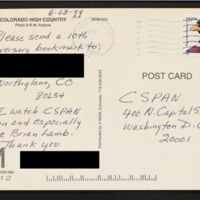 COLORADO HIGH COUNTRY
6-28-99
Please send a 10th
versary bookmark to:
Northglenn, CO
80234
I WATCH CSPAN
on and especially
e Brian Lamb.
Thank you.
POST CARD
CSPAN
400 N. Capitol S
Washington D.C
20001